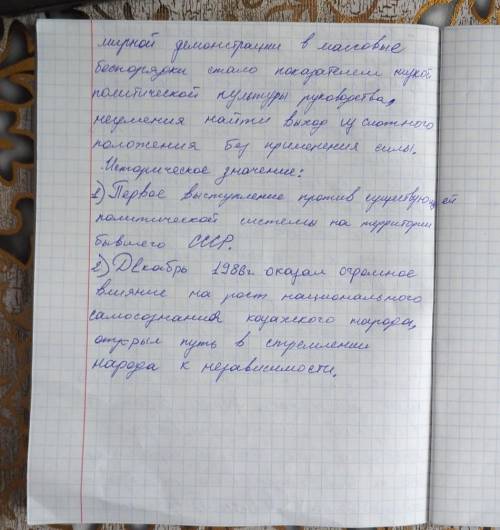 мирной демонстрации в массовые
беспорядки стало показателем низкой
политической культуры руководства,
неумения найти выход из сложного
положения без применения силы.
Историческое значение:
1) Первое выступление против существующей
политической системы на территории
бывшего СССР.
2) Декабрь 1986г оказал огромное
влияние на рост национального
самосознания казахского народа,
открыл путь в стремлении
народа к независимости.